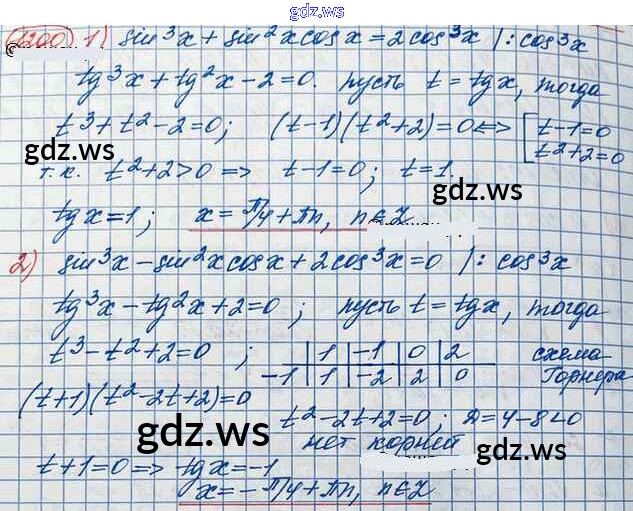 gdz.ws
1200) 1) sin³x + sin²x cos x = 2 cos³x | : cos³x
tg³x + tg²x - 2 = 0. пусть t = tg x, тогда
t³ + t² - 2 = 0; (t-1)(t²+2) = 0 <=> [ t-1=0
t²+2=0
gdz.ws
т.к. t²+2>0 => t-1=0; t=1.
gdz.ws
tg x = 1; x = π/4 + πn, n∈Z
2) sin³x - sin²x cos x + 2cos³x = 0 | : cos³x
tg³x - tg²x + 2 = 0; пусть t = tg x, тогда
t³ - t² + 2 = 0; | 1 | -1 | 0 | 2 схема
-1 | 1 | -2 | 2 | 0 Горнера
(t+1)(t²-2t+2)=0
t²-2t+2=0; D=4-8<0
gdz.ws
нет корней
gdz.ws
t+1=0 => tg x = -1
x = -π/4 + πn, n∈Z
gdz.ws